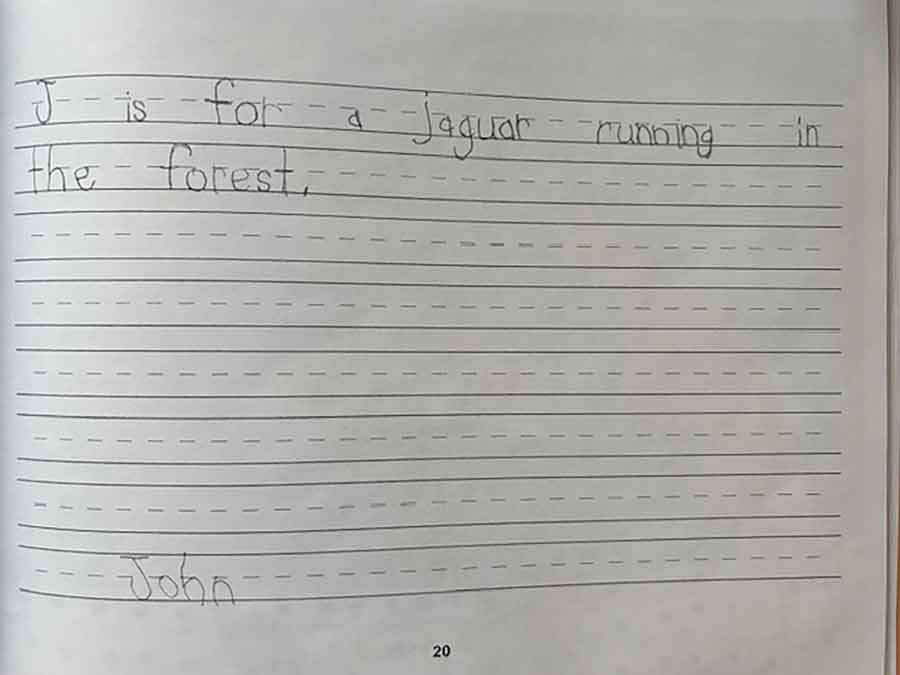 J is for a jaguar running in
the forest.
John
20